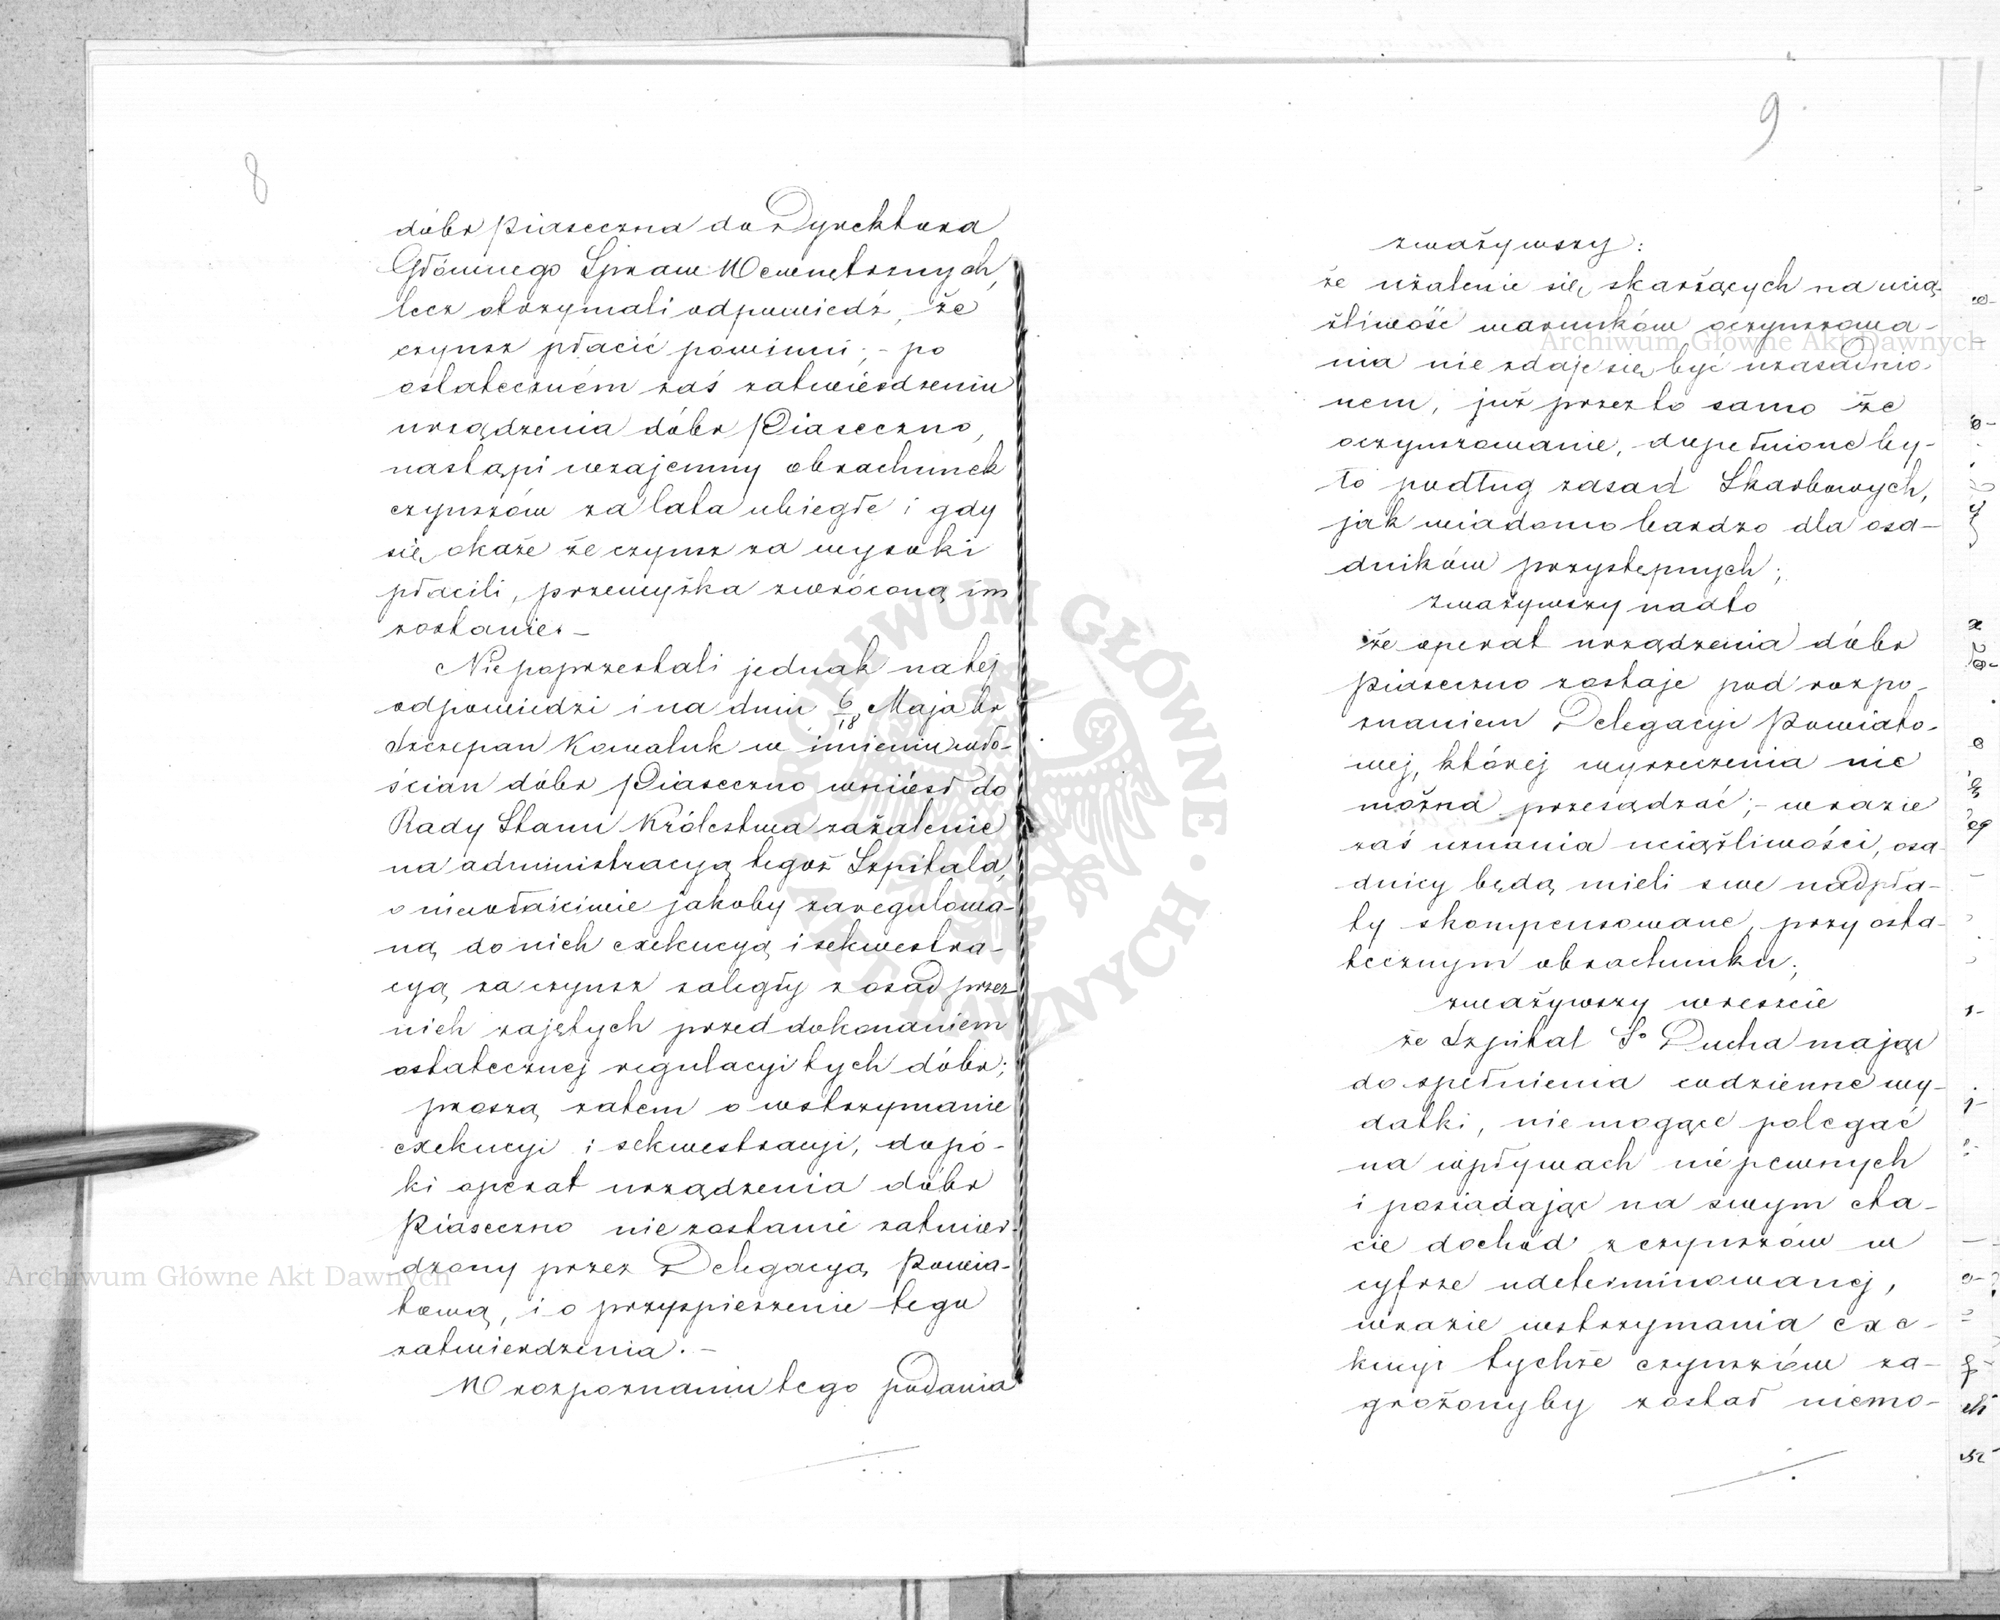 8
dóbr Piaseczna do Dyrektora
Głównego Spraw Wewnętrznych,
lecz otrzymali odpowiedź, że
czynsz płacić powinni; - po
ostateczném zaś zatwierdzeniu
urządzenia dóbr Piaseczno,
nastąpi wzajemny obrachunek
czynszów za lata ubiegłe i gdy
się okaże że czynsz za wysoki
płacili, przewyżka zwróconą im
zostanie. -
Nie poprzestali jednak na tej
odpowiedzi i na dniu 6/18 Maja br
Szczepan Kowaluk w imieniu wło-
ścian dóbr Piaseczno wniósł do
Rady Stanu Królestwa zażalenie
na administracyą tegoż Szpitala,
o niewłaściwie jakoby zaregulowa-
ną do nich exekucyą i sekwestra-
cyą za czynsz zaległy z osad przez
nich zajętych przed dokonaniem
ostatecznej regulacyi tych dóbr;
proszą zatem o wstrzymanie
exekucyi i sekwestracyi, dopó-
ki operat urządzenia dóbr
Piaseczno nie zostanie zatwier-
dzony przez Delegacyą Powia-
tową, i o przyspieszenie tego
zatwierdzenia. -
W rozpoznaniu tego podania
9
zważywszy:
że użalenie się skarżących na ucią-
żliwość warunków oczynszowa-
nia nie zdaje się być uzasadnio-
nem, już przez to samo że
oczynszowanie, dopełnione by-
ło podług zasad Skarbowych,
jak wiadomo bardzo dla osa-
dników przystępnych;
Zważywszy nadto
że operat urządzenia dóbr
Piaseczno zostaje pod rozpo-
znaniem Delegacyi Powiato-
wej, której wyrzeczenia nie
można przesądzać; - w razie
zaś uznania uciążliwości, osa-
dnicy będą mieli swe nadpła-
ty skompensowane, przy osta-
tecznym obrachunku;
zważywszy wreszcie
że Szpital Sº Ducha mając
do spełnienia codzienne wy-
datki, nie mogące polegać
na wpływach niepewnych
i posiadając na swym eta-
cie dochód z czynszów w
cyfrze udeterminowanej,
w razie wstrzymania exe-
kucyi tychże czynszów za-
grożonyby został niemo-
Archiwum Główne Akt Dawnych
Archiwum Główne Akt Dawnych
ARCHIWUM GŁÓWNE · AKT DAWNYCH ·